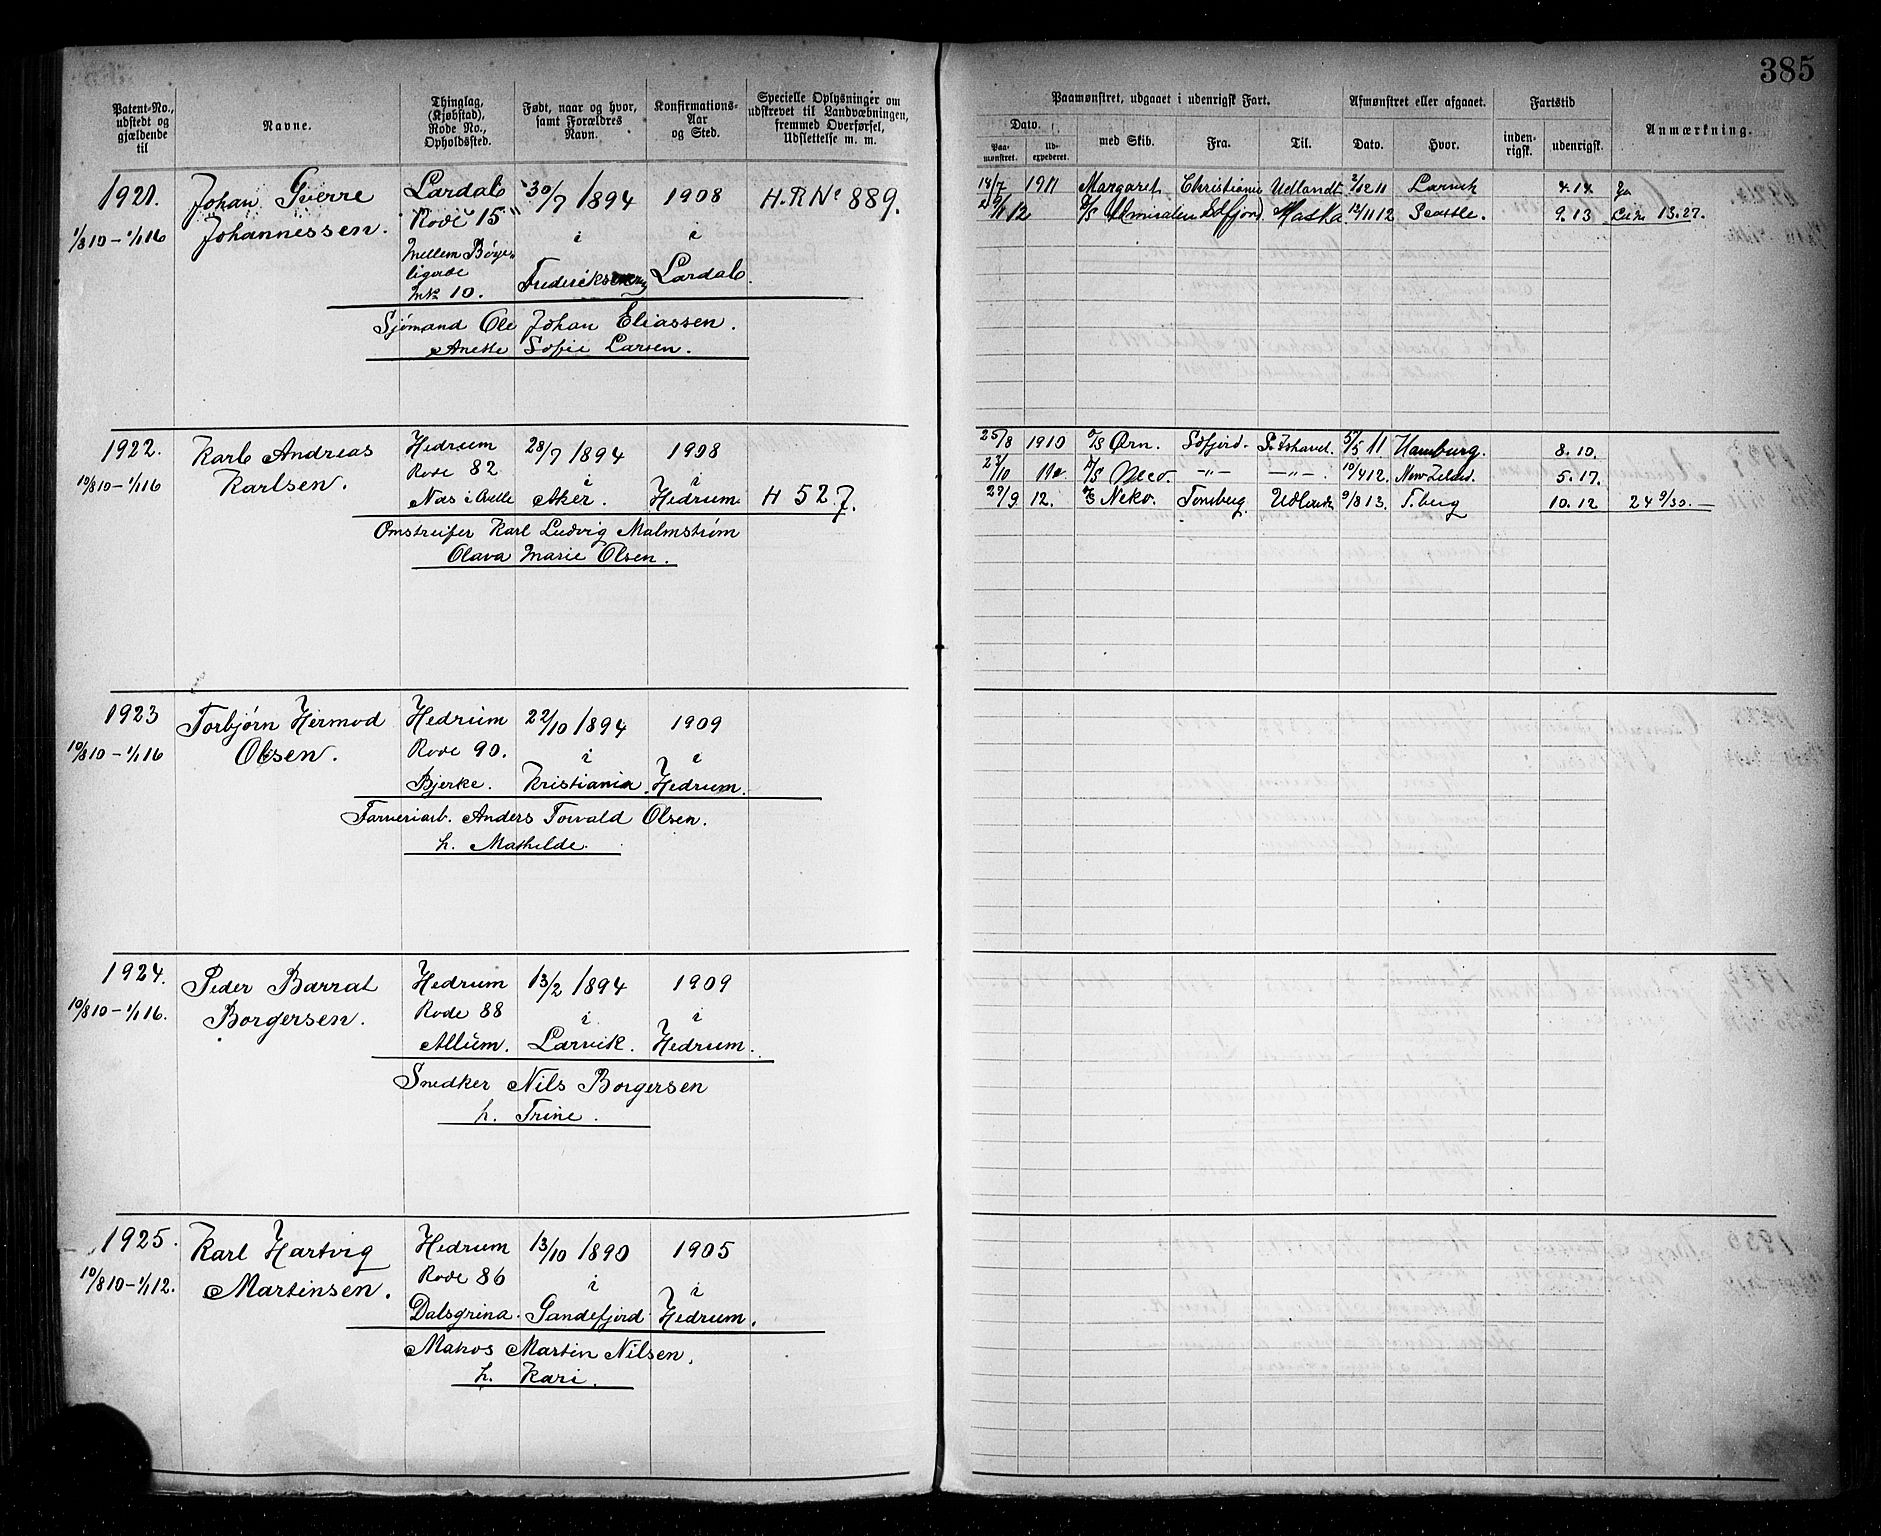 385
Patent-No., udstedt og gjældende til
Navne.
Thinglag, (Kjøbstad), Rode No., Opholdssted.
Født, naar og hvor, samt Forældres Navn.
Konfirmations-Aar og Sted.
Specielle Oplysninger om udskrevet til Landvæbningen, fremmed Overførsel, Udslettelse m. m.
Paamønstret, udgaaet i udenrigsk Fart.
Dato.
Paa-mønstret.
Ud-expederet.
med Skib.
Fra.
Til.
Afmønstret eller afgaaet.
Dato.
Hvor.
Fartstid
inden-rigsk.
udenrigsk.
Anmærkning.
1921. Johan Sverre Lardal 30/7 1894 1908 H.R No 889.
1/8 10 – 1/1 16 Johannessen. Rode 15 i i
Mellem Bøge-
ligade
mk 10. Frederiksværn Lardal.
Sjømand Ole Johan Eliassen.
Anette Sofie Larsen.
18/7 1911 Margaret. Christiania Udlandt 2/12 11 Larvik 4.14. Ja
12 Admiralen Sdfjord Alaska 12/11 12 Seattle. 9.13 13.27.
1922. Karl Andreas Hedrum 28/7 1894 1908
10/8 10 – 1/1 16 Karlsen. Rode 82 i i
Nas i Qvelle Aker. Hedrum H 527.
Omstreifer Karl Ludvig Malmstrøm
Olava Marie Olsen.
25/8 1910 Ørn. Sdfjord. S. Ishavet. 5/5 11 Hamburg. 8.10.
–„– –„– 10/4 12. New Zeland. 5.17.
27/9 12. Neko. Tønsberg Udlandt 9/8 13. T.berg 10.12 24 9/30.
1923 Torbjørn Hermod Hedrum 22/10 1894 1909
10/8 10 – 1/1 16 Olsen. Rode 90. i i
Bjerke. Kristiania Hedrum.
Farveriarb. Anders Torvald Olsen.
h. Mathilde.
1924. Peder Barrat Hedrum 13/2 1894 1909
10/8 10 – 1/1 16. Borgersen. Rode 88 i i
Allum. Larvik. Hedrum.
Snedker Nils Borgersen
h. Trine.
1925. Karl Hartvig Hedrum 13/10 1890 1905
10/8 10 – 1/1 12. Martinsen. Rode 86 i i
Dalsgrina. Sandefjord Hedrum.
Matros Martin Nilsen.
h. Kari.